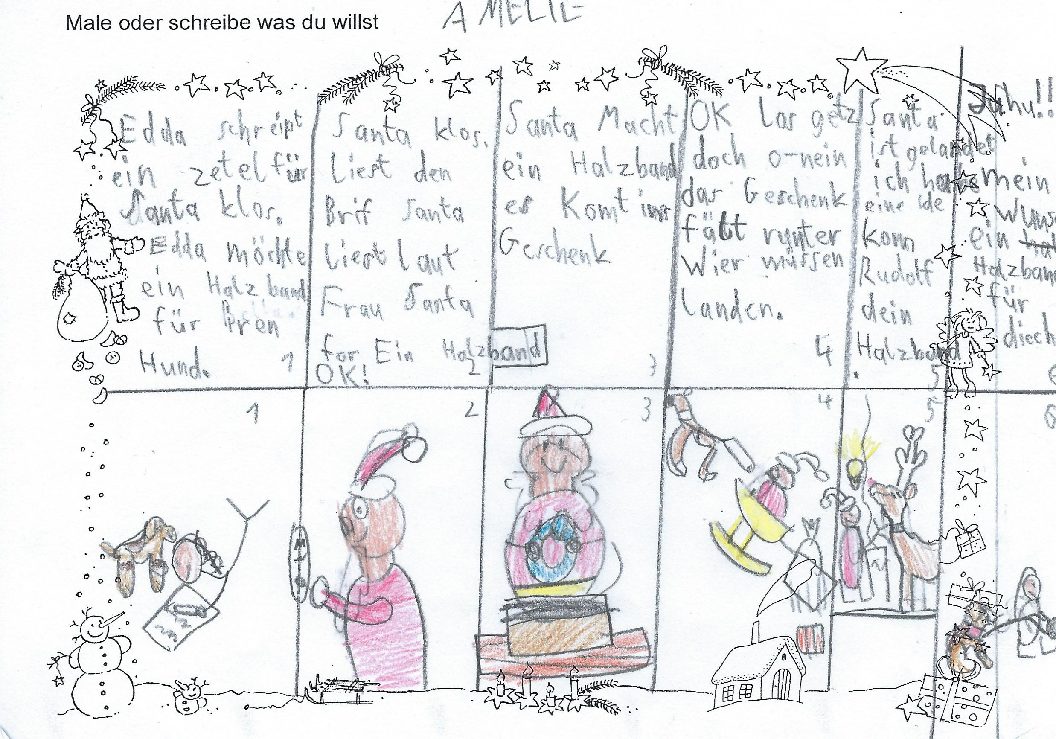 Male oder schreibe was du willst
AMELIE
Edda schreipt
ein zetel für
Santa klos.
Edda möchte
ein Halzband
für iren
Hund.
1
Santa klos.
Liest den
Brif Santa
Liest Laut
Frau Santa
for Ein Halzband
OK!
2
Santa Macht
ein Halzband
es Komt ins
Geschenk
3
OK Los getz
doch o-nein
das Geschenk
fällt runter
Wier müssen
Landen.
4
Santa
ist gelandet
ich habe
eine ide
komm
Rudolf
dein
Halzband
.
5
Jahu!!
mein
Wuns
ein
Halzband
für
diech
6
1
2
3
4
5
6